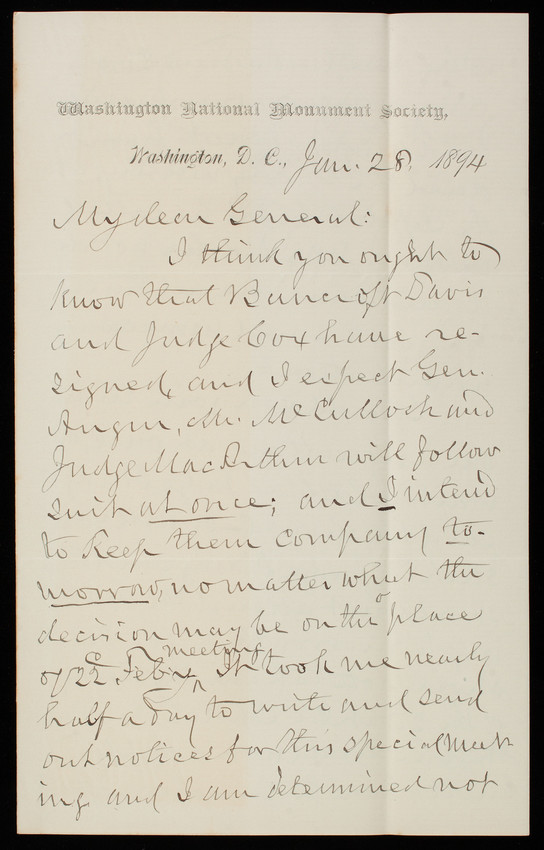 Washington National Monument Society,
Washington, D. C., Jan. 28, 1894
My dear General:
I think you ought to
know that Bancroft Davis
and Judge Cox have re-
signed, and I expect Gen.
Augur, Mr. McCulloch and
Judge MacArthur will follow
suit at once; and I intend
to keep them company to-
morrow, no matter what the
decision may be on the place
of 22 Feby meeting. It took me nearly
half a day to write and send
out notices for this special meet-
ing and I am determined not